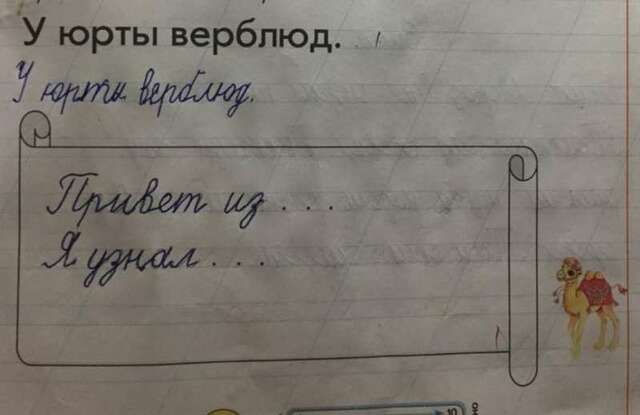 У юрты верблюд.
У юрты верблюд.
Привет из . . .
Я узнал . . .